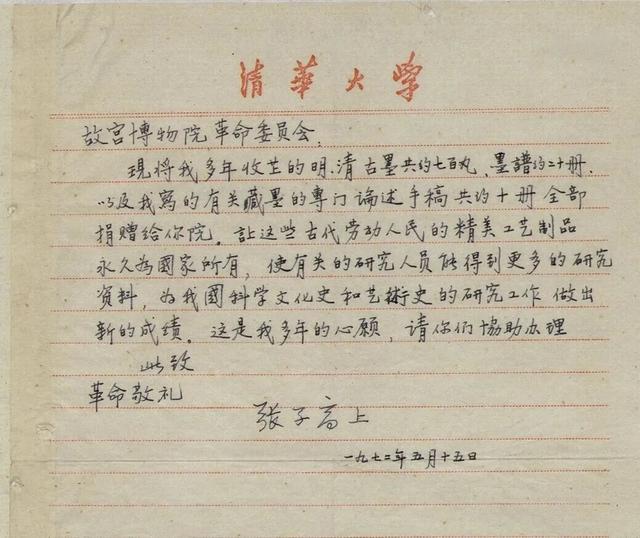 清華大學
故宫博物院革命委员会：
現将我多年收芷的明.清古墨共约七百丸，墨譜约二十册.
以及我寫的有关藏墨的專门论述手稿共约十册全部
捐赠给你院。讓这些古代劳动人民的精美工艺制品
永久為國家所有，使有关的研究人员能得到更多的研究
資料，为我國科学文化史和艺術史的研究工作做出
新的成绩。这是我多年的心願，请你们協助办理
此致
革命敬礼
張子高上
一九七二年五月十五日